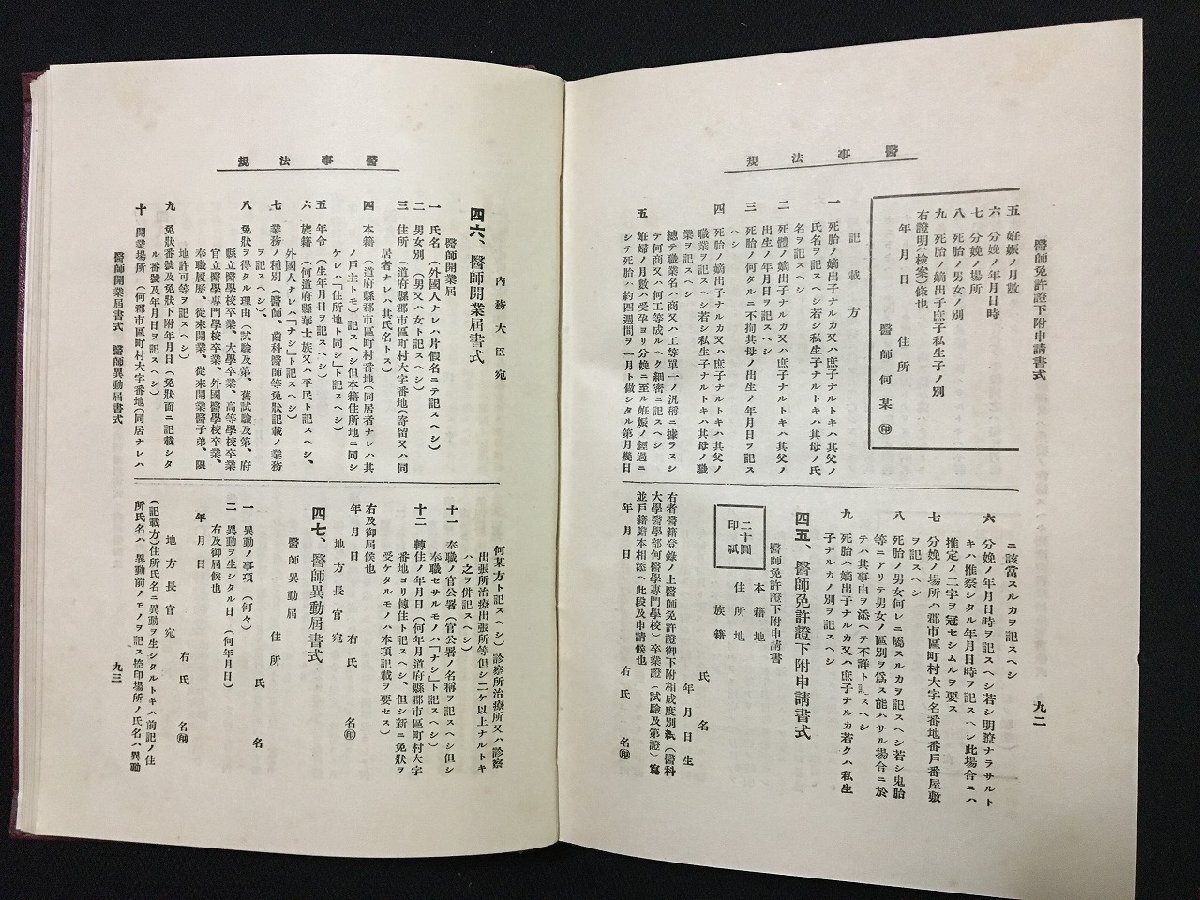 醫事法規
醫師免許證下附申請書式
九二
五 妊娠ノ月數
六 分娩ノ年月日時
七 分娩ノ場所
八 死胎ノ男女ノ別
九 死胎ノ嫡出子庶子私生子ノ別
右證明(檢案)候也
年月日 住所
醫師何某㊞
記載方
一 死胎ノ嫡出子ナルカ又ハ庶子ナルトキハ其父ノ
氏名ヲ記スヘシ若シ私生子ナルトキハ其母ノ氏
名ヲ記スヘシ
二 死體ノ嫡出子ナルカ又ハ庶子ナルトキハ其父ノ
出生ノ年月日ヲ記スヘシ
三 死胎ノ何タルニ不拘其母ノ出生ノ年月日ヲ記ス
ヘシ
四 死胎ノ嫡出子ナルカ又ハ庶子ナルトキハ其父ノ
職業ヲ記スヘシ若シ私生子ナルトキハ其母ノ職
業ヲ記スヘシ
總テ職業名ハ商又ハ工等單一ノ汎稱ニ據ラスシ
テ何商又ハ何工等成ルヘク細密ニ記スヘシ
五 妊婦ノ月數ハ受孕ヨリ分娩ニ至ル妊娠ノ經過ニ
シテ死胎ハ約四週間ヲ一月ト做シタル第月幾日
ニ該當スルカヲ記スヘシ
六 分娩ノ年月日時ヲ記スヘシ若シ明瞭ナラサルト
キハ推察シタル年月日時ヲ記スヘシ此場合ニハ
推定ノ二字ヲ冠セシムルヲ要ス
七 分娩ノ場所ハ郡市區町村大字名番地番戶番屋敷
ヲ記スヘシ
八 死胎ノ男女何レニ屬スルカヲ記スヘシ若シ鬼胎
等ニアリテ男女ノ區別ヲ爲ス能ハサル場合ニ於
テハ其事由ヲ添ヘテ不詳ト記スヘシ
九 死胎ハ嫡出子ナルカ又ハ庶子ナルカ若クハ私生
子ナルカノ別ヲ記スヘシ
四五、醫師免許證下附申請書式
醫師免許證下附申請書
二十圓
印紙
本籍地
住所地
族籍
氏名
年月日生
右者醫籍登錄ノ上醫師免許證御下附相成度別紙(醫科
大學醫學部何醫學專門學校)卒業證(試驗及第證)寫
並戶籍謄本相添ヘ此段及申請候也
年月日 右氏名㊞
醫事法規
內務大臣宛
四六、醫師開業屆書式
醫師開業屆
一 氏名(外國人ナレハ片假名ニテ記スヘシ)
二 男女別(男又ハ女ト記スヘシ)
三 住所(道府縣郡市區町村大字番地(寄留又ハ同
居者ナレハ其氏名トス)
四 本籍(道府縣郡市區町村番地(同居者ナレハ其
ノ戶主トモ)記スヘシ但本籍住所地ニ同シ
ケレハ「住所地ト同シ」ト記スヘシ)
五 年令(生年月日ヲ記スヘシ)
六 族籍(何道府縣華士族又ハ平民ト記スヘシ、
外國人ナレハ「ナシ」ト記スヘシ)
七 業務ノ種別(醫師、齒科醫師等免狀記載ノ業務
ヲ記スヘシ)
八 免狀ヲ得タル理由(試驗及第、舊試驗及第、府
縣立醫學校卒業、大學卒業、高等學校卒業
官立醫學專門學校卒業、外國醫學校卒業、
奉職履歷、從來開業、從來開業醫子弟、限
地許可等ヲ記スヘシ)
九 免狀番號及免狀下附年月日(免狀面ニ記載シタ
ル番號及年月日ヲ記スヘシ)
十 開業場所(何郡市區町村大字番地(同居ナレハ
何某方ト記スヘシ)診察所治療所又ハ診察
出張所治療出張所等但シ二ケ以上ナルトキ
ハ之ヲ併記スヘシ)
十一 奉職ノ官公署(官公署ノ名稱ヲ記スヘシ但シ
奉職セサルモノハ「ナシ」ト記スヘシ)
十二 轉住ノ年月日(何年月道府縣郡市區町村大字
番地ヨリ轉住ト記スヘシ、但シ新ニ免狀ヲ
受ケタルモノハ本項記載ヲ要セス)
右及御屆候也
年月日 右氏名㊞
地方長官宛
四七、醫師異動屆書式
醫師異動屆
住所
氏名
一 異動ノ事項(何々)
二 異動ヲ生シタル日(何年月日)
右及御屆候也
年月日
右氏名㊞
地方長官宛
(記載方)住所氏名ニ異動ヲ生シタルトキハ前記ノ住
所氏名ハ異動前ノモノヲ記ス捺印場所ノ氏名ハ異動
醫師開業屆書式 醫師異動屆書式
九三